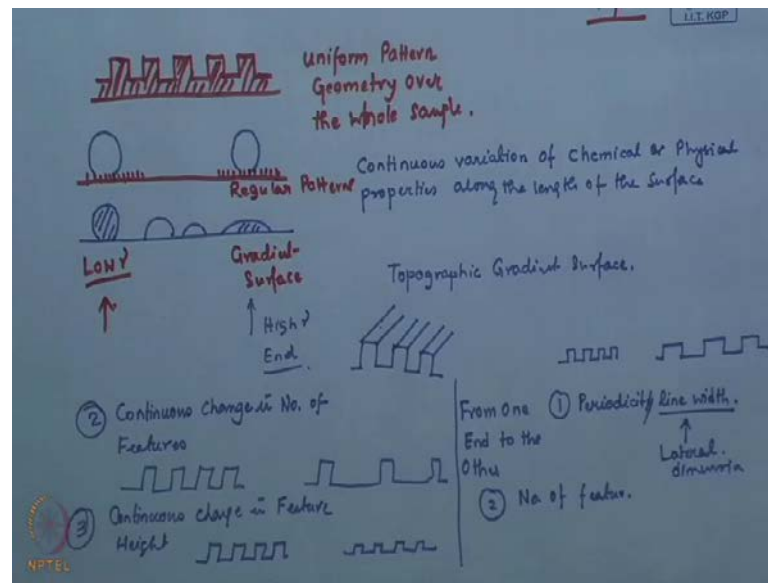 I.I.T. KGP
Uniform Pattern
Geometry over
the whole sample.
Regular Pattern
Continuous variation of Chemical or Physical
properties along the length of the Surface
Low γ
Gradient
Surface
High γ
End.
Topographic Gradient Surface.
② Continuous Change in No. of
Features
③ Continuous change in Feature
Height
From One
End to the
Other
① Periodicity/line width.
Lateral
dimension
② No of feature.
NPTEL